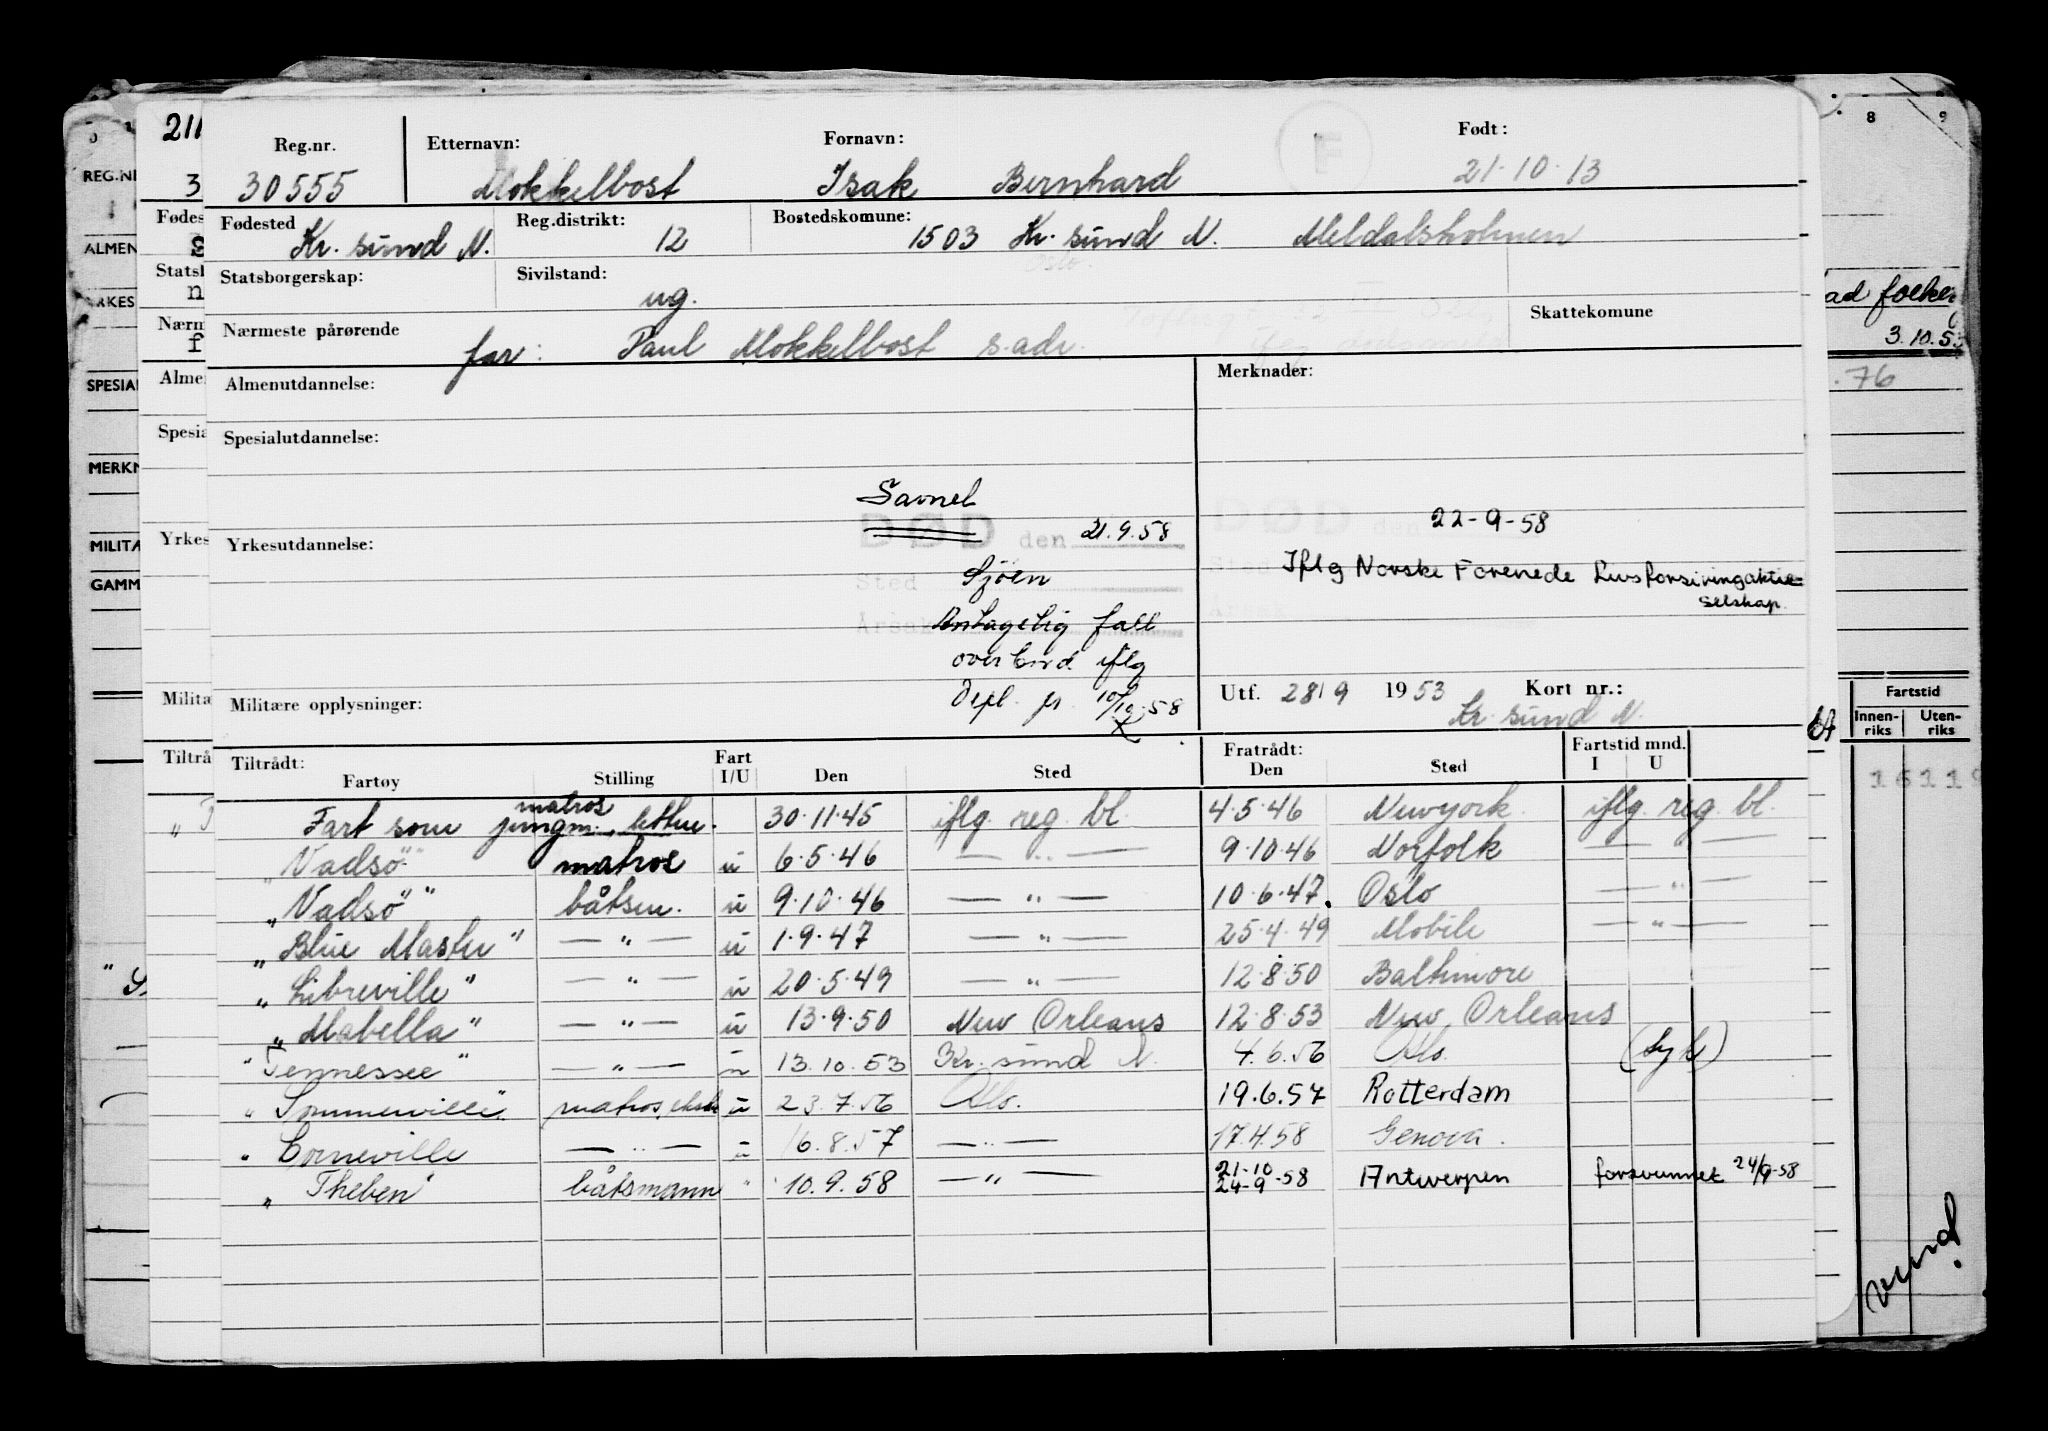 Reg.nr. Etternavn: Fornavn: Født:
30555 Mokkelbost Isak Bernhard 21.10.13
Fødested Reg.distrikt: Bostedskomune:
Kr. sund N. 12 1503 Kr. sund N. Meldalsholmen
Oslo.
Statsborgerskap: Sivilstand: Skattekomune
ug.
Nærmeste pårørende
far: Paul Mokkelbost s.adr.
Almenutdannelse: Merknader:
Spesialutdannelse:
Savnet
DØD den 21.9.58 DØD den 22-9-58
Yrkesutdannelse:
Sted Sjøen Iflg Norske Forenede Livsforsikringaktie=
selskap.
Årsak Antagelig fall
overbord iflg
Militære opplysninger: Depl. pr. 10/10-58
Utf. 28/9 1953 Kort nr.:
Kr. sund N.
Tiltrådt: Fart Fratrådt: Fartstid mnd.
Fartøy Stilling I/U Den Sted Den Sted I U
matros
Fart som jungm., lettm. 30.11.45 iflg. reg. bl. 4.5.46 Newyork. iflg. reg. bl.
"Vadsö" matros u 6.5.46 — " — 9.10.46 Norfolk — " —
"Vadsö" båtsm. u 9.10.46 — " — 10.6.47. Oslo — " —
"Blue Master" — " — u 1.9.47 — " — 25.4.49 Mobile — " —
"Libreville" — " — u 20.5.49 — " — 12.8.50 Baltimore
"Mabella" — " — u 13.9.50 New Orleans 12.8.53 New Orleans
"Tennessee" — " — u 13.10.53 Kr. sund N. 4.6.56 Oslo. (syk)
"Sommerville" matros, ekstr u 23.7.56 Oslo. 19.6.57 Rotterdam
" Corneville — " — u 16.8.57 — " — 17.4.58 Genova.
"Theben" båtsmann " 10.9.58 — " — 21-10 24-9 -58 Antwerpen forsvunnet 24/9-58
211
REG.NR
ALMEN
SPESIAL
MERKN
MILITÆ
GAMM
8 9
3.10.53
.76
Fartstid
Innen-riks Uten-riks